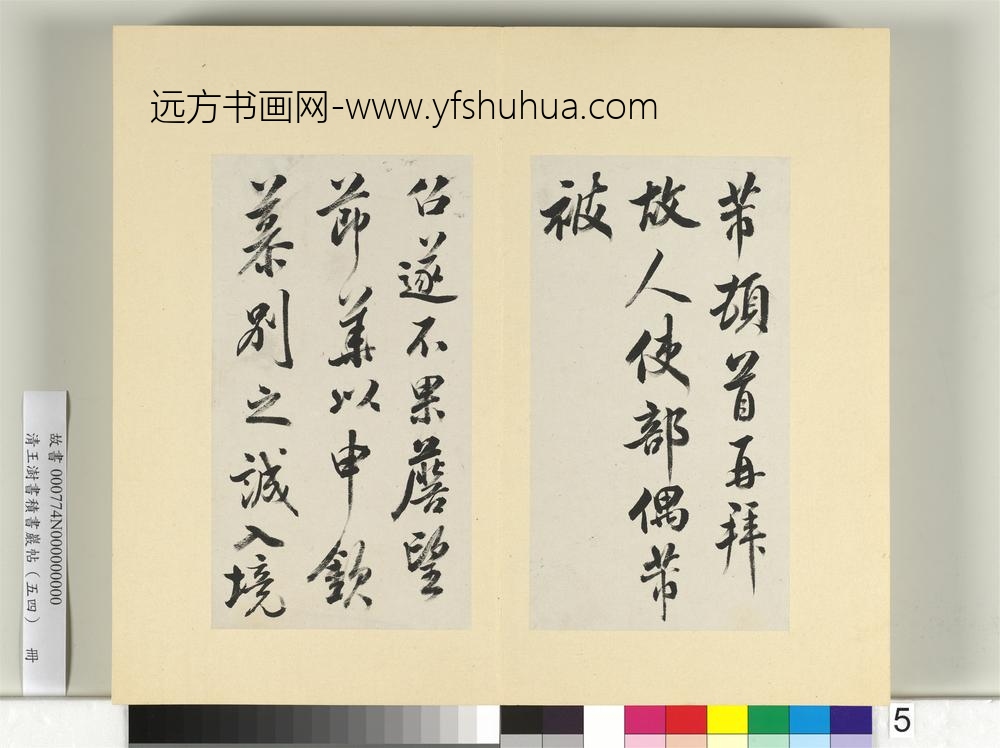 远方书画网-www.yfshuhua.com
芾頓首再拜
故人使部偶芾
被
召遂不果望
節華以申欽
慕別之誠入境
故書 000774N000000000
清王澍書積書巖帖（五四） 冊
5